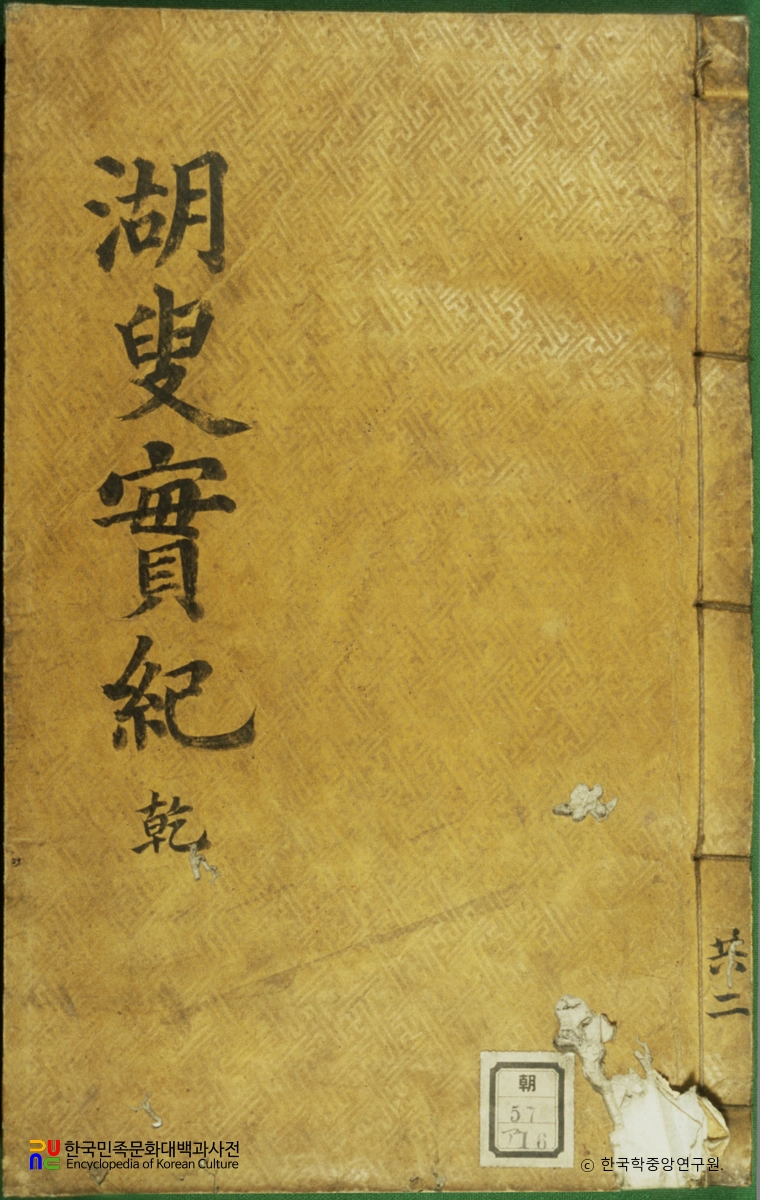 湖叟實紀
乾
共二
朝
57
ア16
한국민족문화대백과사전
Encyclopedia of Korean Culture
ⓒ 한국학중앙연구원.